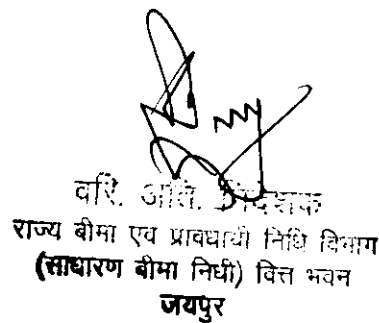 वरि. अति. निदेशक
राज्य बीमा एव प्रावधायी निधि विभाग
(साधारण बीमा निधी) वित्त भवन
जयपुर